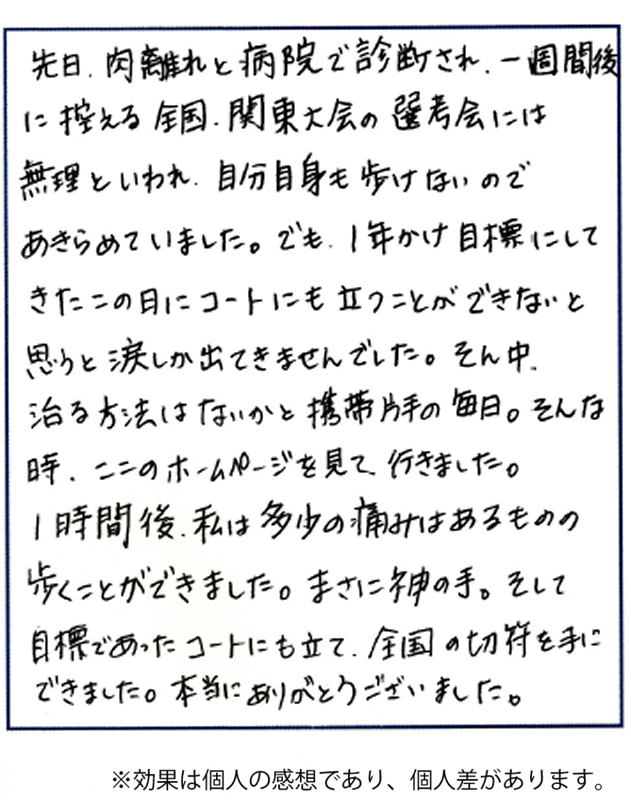 先日、肉離れと病院で診断され、一週間後
に控える全国、関東大会の選考会には
無理といわれ、自分自身も歩けないので
あきらめていました。でも、1年かけ目標にして
きたこの日にコートにも立つことができないと
思うと涙しか出てきませんでした。そん中、
治る方法はないかと携帯片手の毎日。そんな
時、ここのホームページを見て、行きました。
1時間後、私は多少の痛みはあるものの
歩くことができました。まさに神の手。そして
目標であったコートにも立て、全国の切符を手に
できました。本当にありがとうございました。
※効果は個人の感想であり、個人差があります。